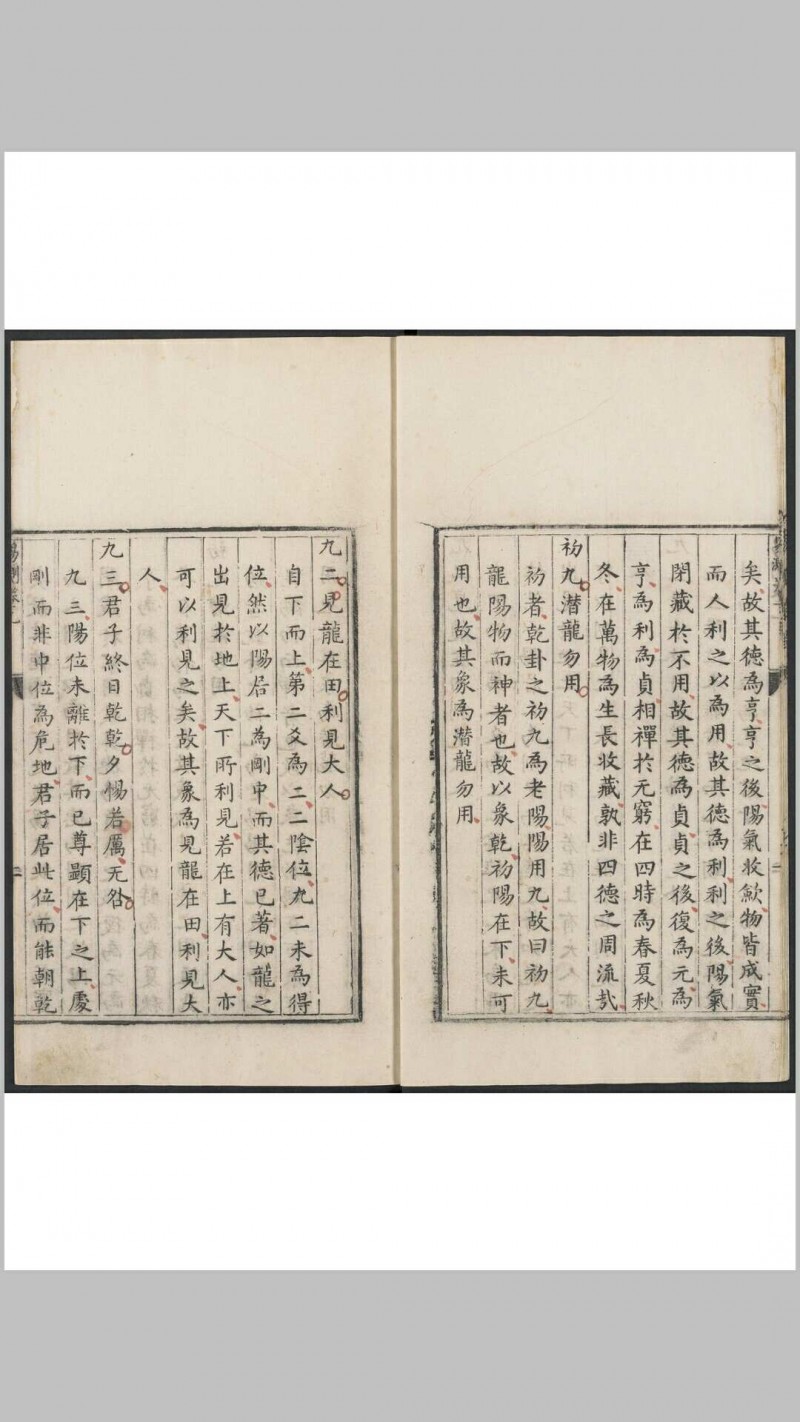 矣故其德為亨亨之後陽氣收歛物皆成實
而人利之以為用故其德為利利之後陽氣
閉藏於不用故其德為貞貞之後復為元為
亨為利為貞相禪於无窮在四時為春夏秋
冬在萬物為生長收藏孰非四德之周流㢤
初九潛龍勿用
初者乾卦之初九為老陽陽用九故曰初九
龍陽物而神者也故以象乾初陽在下未可
用也故其象為潛龍勿用
九二見龍在田利見大人
自下而上第二爻為二二陰位九二未為得
位然以陽居二為剛中而其德已著如龍之
出見於地上天下所利見若在上有大人亦
可以利見之矣故其象為見龍在田利見大
人
九三君子終日乾乾夕惕若厲无咎
九三陽位未離於下而已尊顯在下之上處
剛而非中位為危地君子居此位而能朝乾